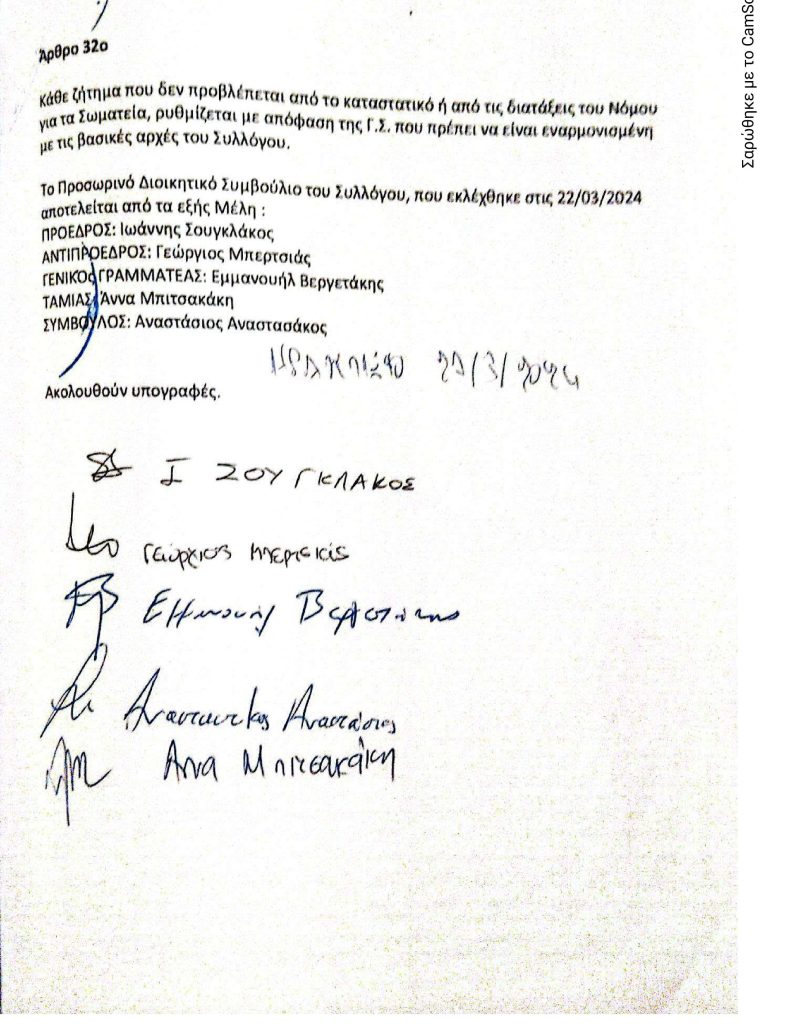 Άρθρο 32ο
Κάθε ζήτημα που δεν προβλέπεται από το καταστατικό ή από τις διατάξεις του Νόμου
για τα Σωματεία, ρυθμίζεται με απόφαση της Γ.Σ. που πρέπει να είναι εναρμονισμένη
με τις βασικές αρχές του Συλλόγου.
Το Προσωρινό Διοικητικό Συμβούλιο του Συλλόγου, που εκλέχθηκε στις 22/03/2024
αποτελείται από τα εξής Μέλη :
ΠΡΟΕΔΡΟΣ: Ιωάννης Σουγκλάκος
ΑΝΤΙΠΡΟΕΔΡΟΣ: Γεώργιος Μπερτσιάς
ΓΕΝΙΚΟΣ ΓΡΑΜΜΑΤΕΑΣ: Εμμανουήλ Βεργετάκης
ΤΑΜΙΑΣ: Άννα Μπιτσακάκη
ΣΥΜΒΟΥΛΟΣ: Αναστάσιος Αναστασάκος
ΗΡΑΚΛΕΙΟ 22/3/2024
Ακολουθούν υπογραφές.
Ι ΣΟΥΓΚΛΑΚΟΣ
Γεώργιος
Εμμανουήλ
Αναστάσιος
Άννα Μπιτσακάκη
Σαρώθηκε με το CamSc